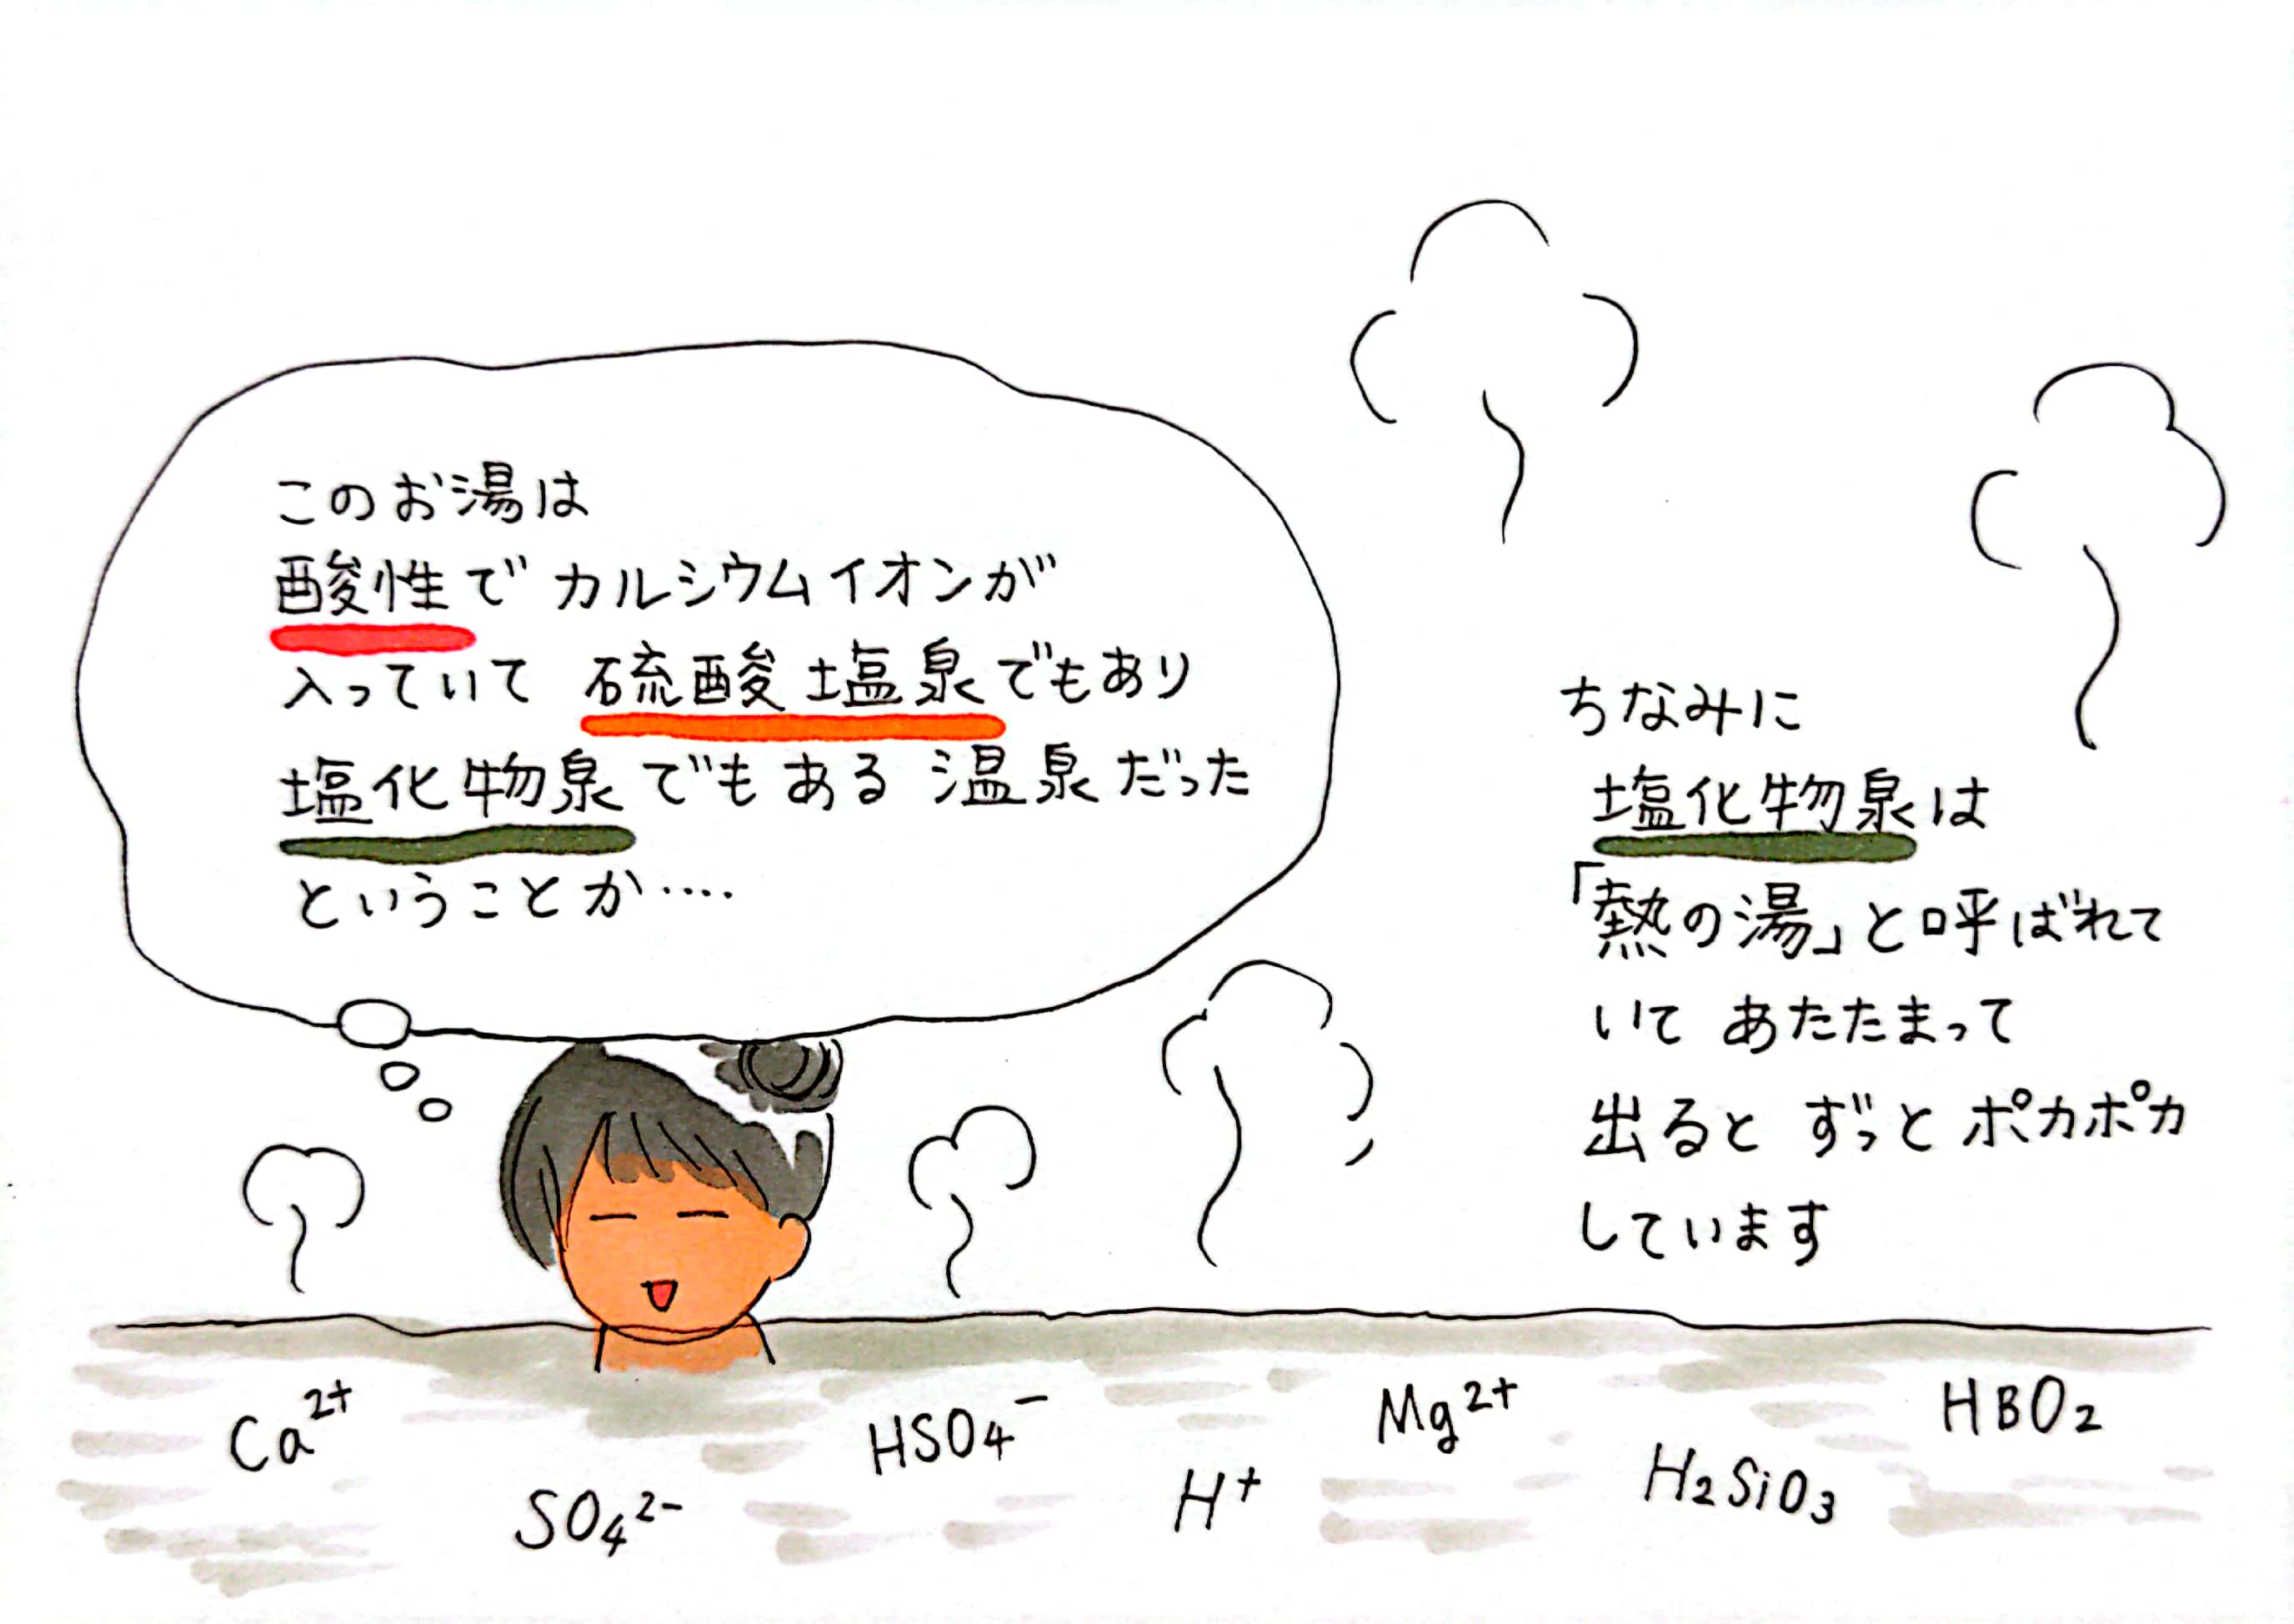 このお湯は
酸性でカルシウムイオンが
入っていて 硫酸塩泉でもあり
塩化物泉でもある 温泉だった
ということか‥‥
ちなみに
塩化物泉は
「熱の湯」と呼ばれて
いて あたたまって
出ると ずっと ポカポカ
しています
Ca²⁺
SO₄²⁻
HSO₄⁻
H⁺
Mg²⁺
H₂SiO₃
HBO₂